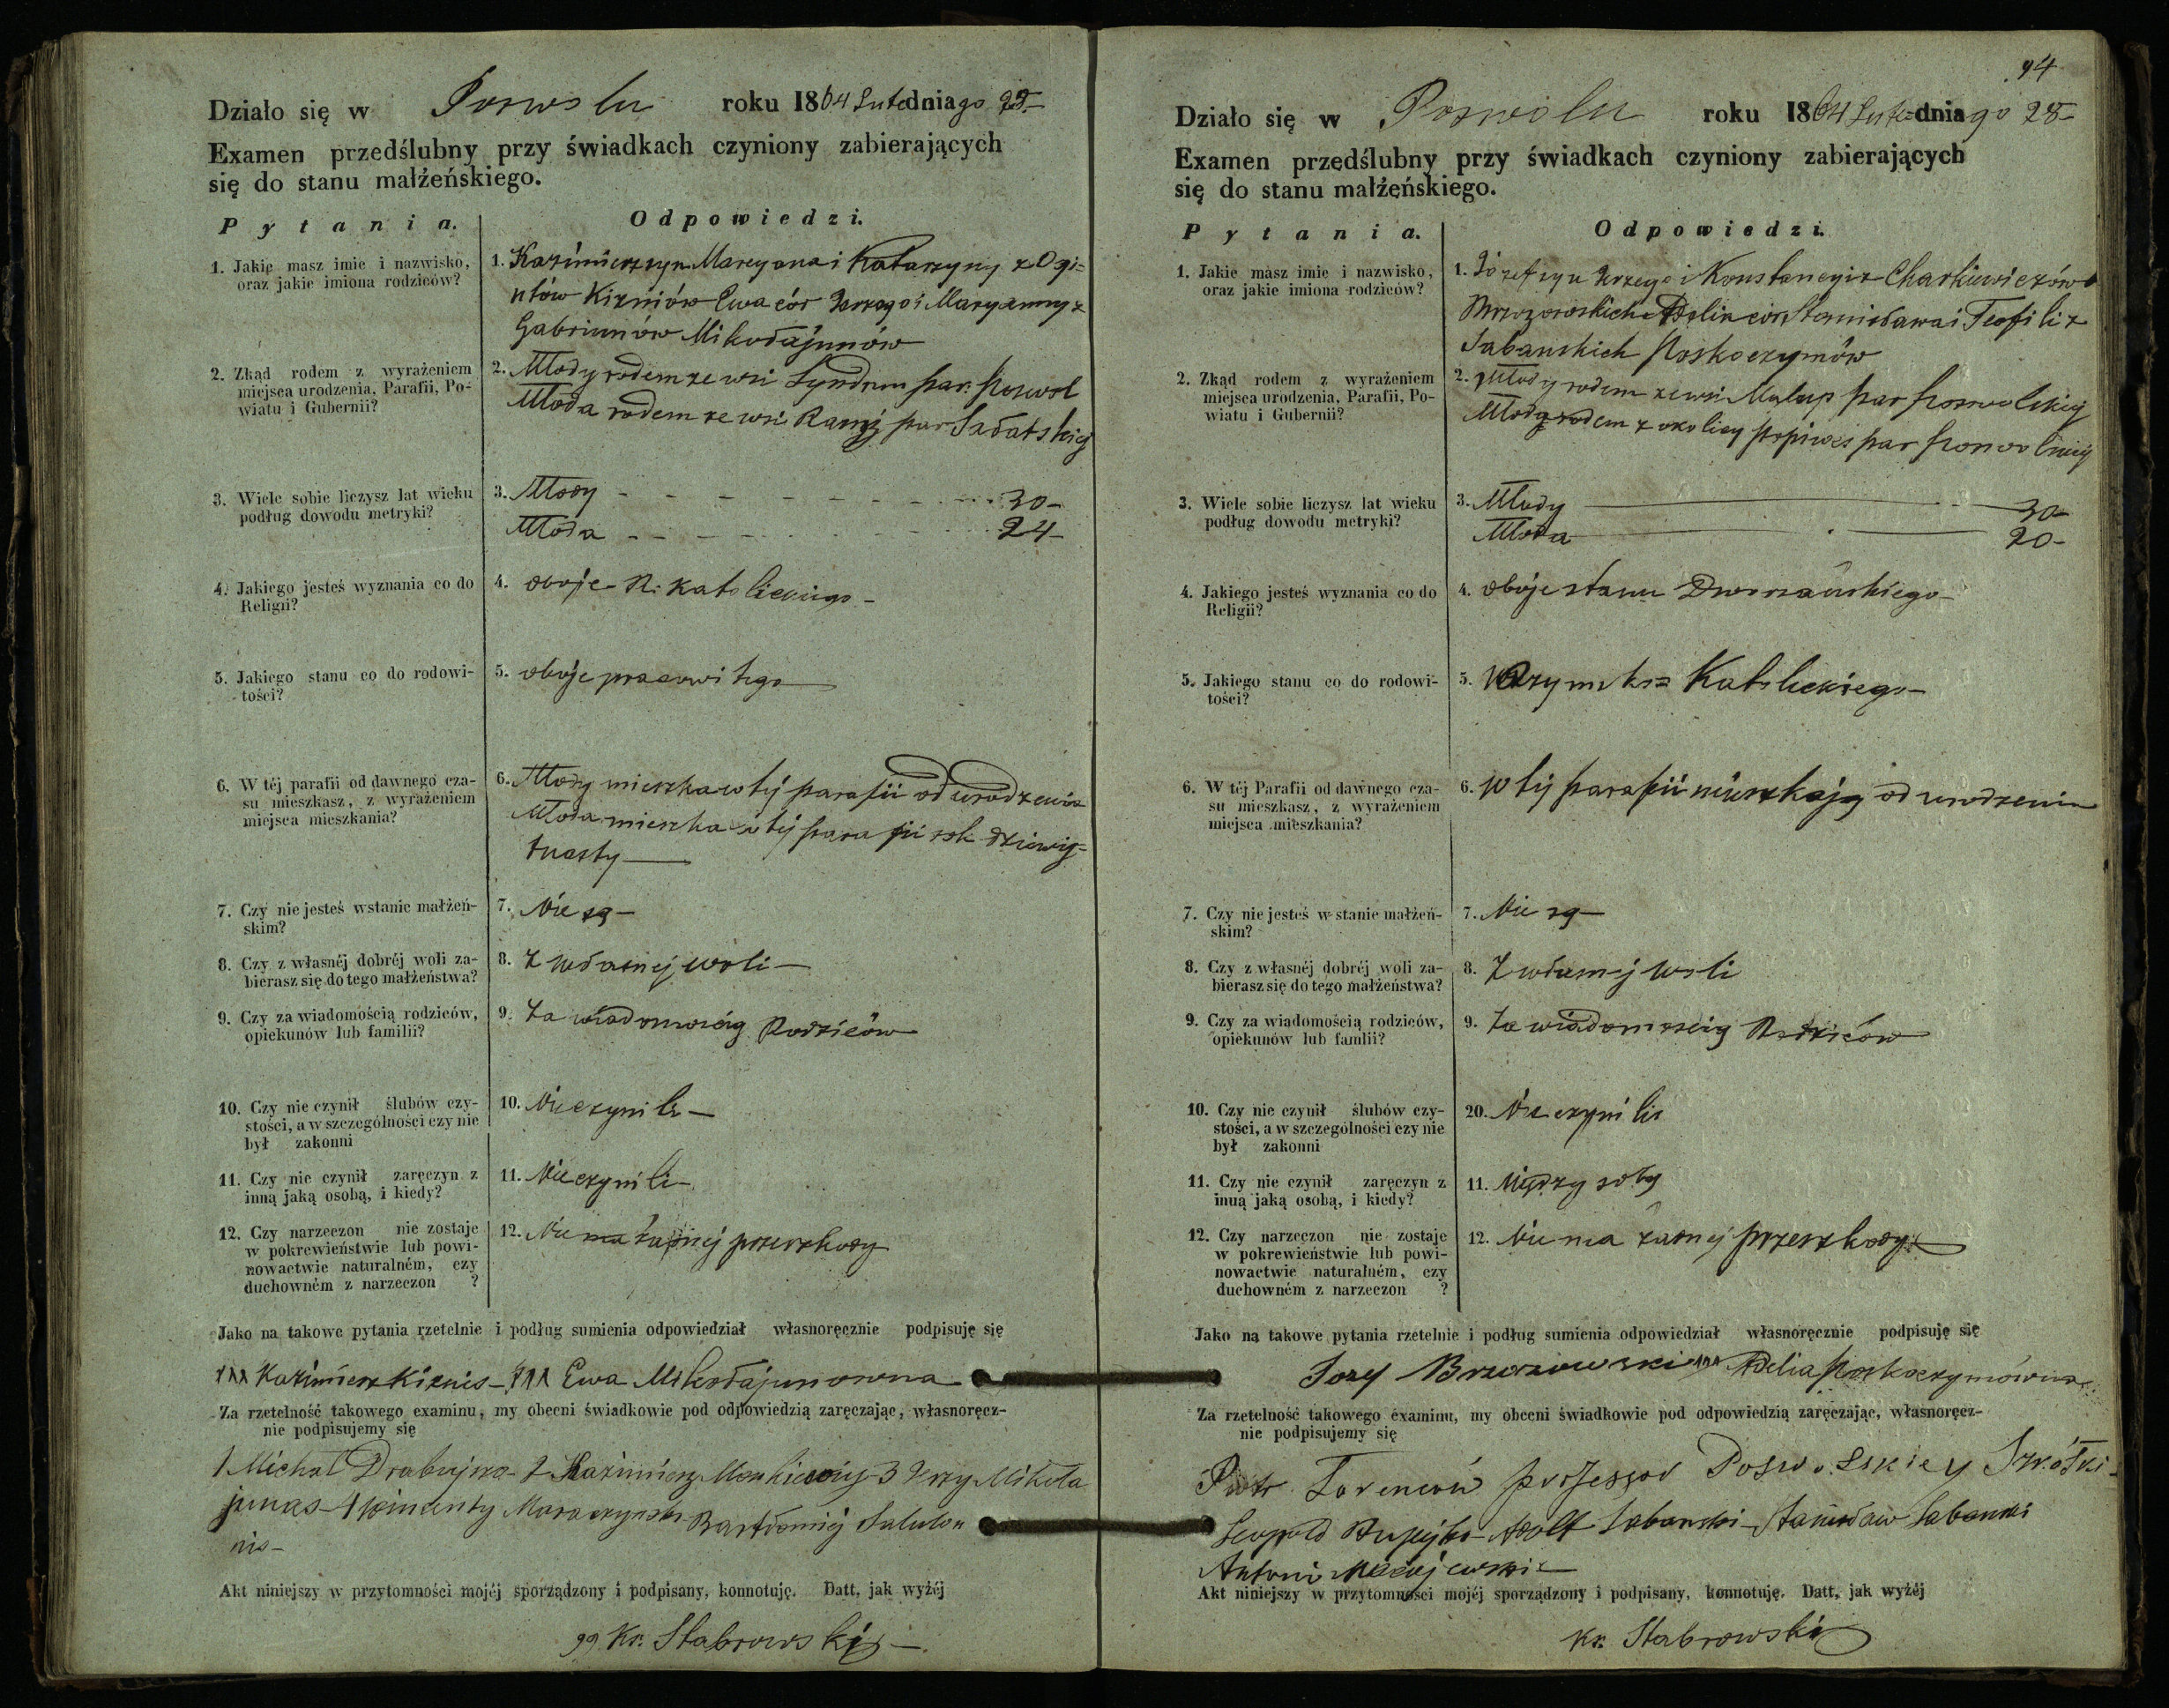 Działo się w Poswolu roku 1864 Lutedniago 23
Examen przedślubny przy świadkach czyniony zabierających
się do stanu małżeńskiego.
Pytania. Odpowiedzi.
1. Jakie masz imie i nazwisko,
oraz jakie imiona rodziców?
1. Kazimierz syn Marcyana i Katarzyny z Ogi=
ntów Kizniów Ewa cór Jerzego i Maryanny z
Gabriunów Mikołajunów
2. Zkąd rodem z wyrażeniem
miejsca urodzenia, Parafii, Po-
wiatu i Gubernii?
2. Młody rodem ze wsi par. Poswol
Młoda rodem ze wsi par Sałatskiej
3. Wiele sobie liczysz lat wieku
podług dowodu metryki?
3. Młody 30-
Młoda 24-
4. Jakiego jesteś wyznania co do
Religii?
4. oboje R. Katolickiego-
5. Jakiego stanu co do rodowi-
tości?
5. oboje pracowitego
6. W téj parafii od dawnego cza-
su mieszkasz, z wyrażeniem
miejsca mieszkania?
6. Młody mieszka w téj parafii od urodzenia
Młoda mieszka w téj parafii rok dziewię-
tnasty
7. Czy nie jesteś wstanie małżeń-
skim?
7. Nie są-
8. Czy z własnéj dobréj woli za-
bierasz się do tego małżeństwa?
8. Z własnej woli-
9. Czy za wiadomością rodziców,
opiekunów lub familii?
9. Za wiadomością Rodziców
10. Czy nie czynił ślubów czy-
stości, a w szczególności czy nie
był zakonni
10. Nie czynili-
11. Czy nie czynił zaręczyn z
inną jaką osobą, i kiedy?
11. Nie czynili-
12. Czy narzeczon nie zostaje
w pokrewieństwie lub powi-
nowactwie naturalném, czy
duchowném z narzeczon ?
12. Nie ma żadnej przeszkody
Jako na takowe pytania rzetelnie i podług sumienia odpowiedział własnoręcznie podpisuję się
XXX Kazimierz Kiznis- XXX Ewa Mikołajunowna
Za rzetelność takowego examinu, my obecni świadkowie pod odpowiedzią zaręczając, własnoręcz-
nie podpisujemy się
1 Michał 2 Kazimierz 3 Jerzy Mikoła
junas- 4 Bartłomiej Salulon
nis-
Akt niniejszy w przytomności mojéj sporządzony i podpisany, konnotuję. Datt, jak wyżéj
Kx. Stabrowski
94
Działo się w Poswolu roku 1864 Lute=dniago 28-
Examen przedślubny przy świadkach czyniony zabierających
się do stanu małżeńskiego.
Pytania. Odpowiedzi.
1. Jakie masz imie i nazwisko,
oraz jakie imiona rodziców?
1. Józef syn Jerzego i Konstancyi z Charkiewiczów
Brzozowskich Adelia cór Stanisława i Teofili z
Sabanskich Poskoczymów
2. Zkąd rodem z wyrażeniem
miejsca urodzenia, Parafii, Po-
wiatu i Gubernii?
2. Młody rodem ze wsi par Poswolskiej
Młoda rodem z okolicy par Poswolskiej
3. Wiele sobie liczysz lat wieku
podług dowodu metryki?
3. Młody 30-
Młoda 20-
4. Jakiego jesteś wyznania co do
Religii?
4. oboje stanu Dworzańskiego-
5. Jakiego stanu co do rodowi-
tości?
5. Rzymsko= Katolickiego-
6. W téj Parafii od dawnego cza-
su mieszkasz, z wyrażeniem
miejsca mieszkania?
6. W téj parafii mieszkają od urodzenia
7. Czy nie jesteś w stanie małżeń-
skim?
7. Nie są-
8. Czy z własnéj dobréj woli za-
bierasz się do tego małżeństwa?
8. Z własnej woli
9. Czy za wiadomością rodziców,
opiekunów lub famlii?
9. Za wiadomością Rodziców
10. Czy nie czynił ślubów czy-
stości, a w szczególności czy nie
był zakonni
20. Nie czynili
11. Czy nie czynił zaręczyn z
inną jaką osobą, i kiedy?
11. Między sobą
12. Czy narzeczon nie zostaje
w pokrewieństwie lub powi-
nowactwie naturalném, czy
duchowném z narzeczon ?
12. Nie ma żadnej przeszkody
Jako na takowe pytania rzetelnie i podług sumienia odpowiedział własnoręcznie podpisuję się
Jozef Brzozowski XXX Adelia Poskoczymówna
Za rzetelność takowego examinu, my obecni świadkowie pod odpowiedzią zaręczając, własnoręcz-
nie podpisujemy się
Piotr professor Poswolskiey Szkółki-
Leopold Adolf Sabanski- Stanisław Sabanski
Antoni Maciejewski-
Akt niniejszy w przytomności mojéj sporządzony i podpisany, konnotuję. Datt, jak wyżéj
Kx. Stabrowski